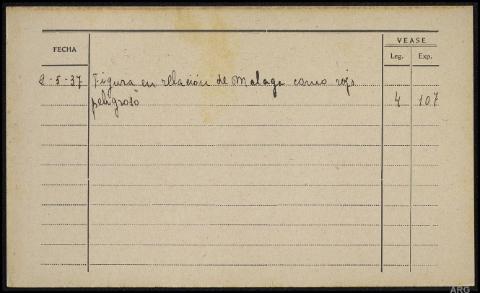 FECHA
VEASE
Leg. Exp.
8-5-37 Figura en relación de Malaga como rojo
peligroso 4 107
ARG